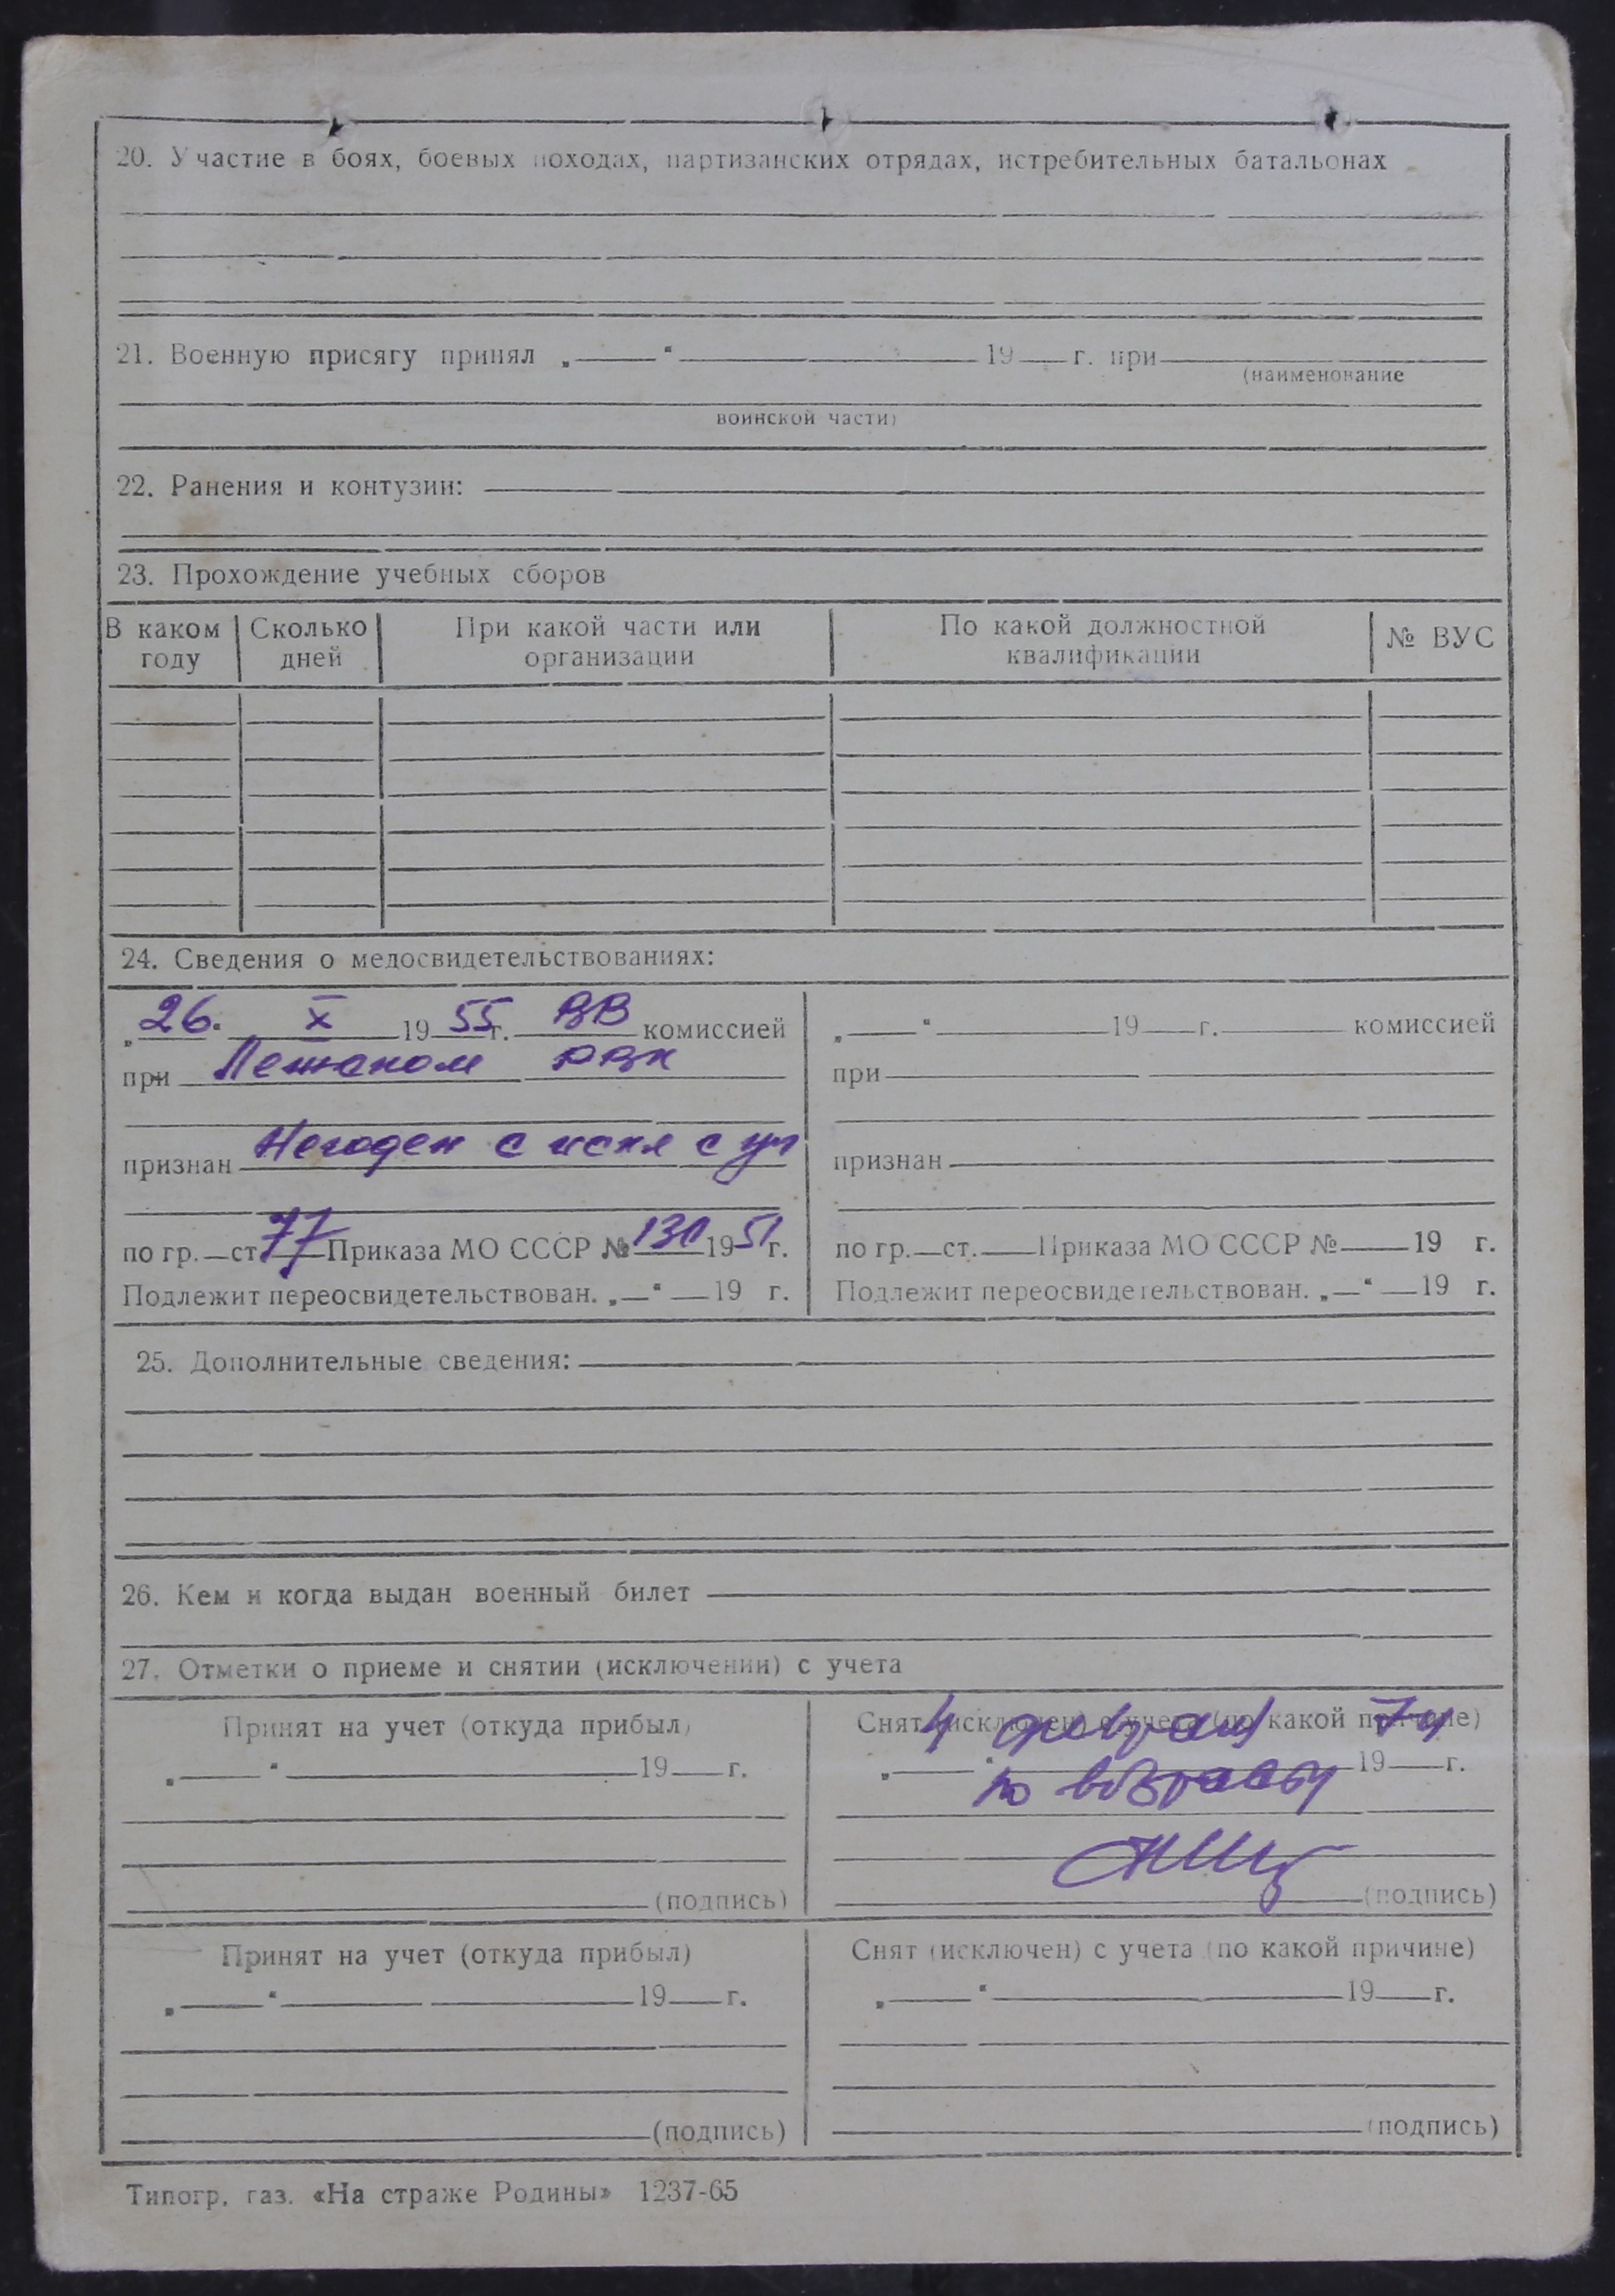 20. Участие в боях, боевых походах, партизанских отрядах, истребительных батальонах
21. Военную присягу принял „ “ 19 г. при
(наименование
воинской части)
22. Ранения и контузии:
23. Прохождение учебных сборов
В каком году Сколько дней При какой части или организации По какой должностной квалификации № ВУС
24. Сведения о медосвидетельствованиях:
„26. X 1955 г. ВВ комиссией
при РВК
признан Негоден с искл с уч
по гр. ст. 77 Приказа МО СССР № 130 1951 г.
Подлежит переосвидетельствован. „ “ 19 г.
„ “ 19 г. комиссией
при
признан
по гр. ст. Приказа МО СССР № 19 г.
Подлежит переосвидетельствован. „ “ 19 г.
25. Дополнительные сведения:
26. Кем и когда выдан военный билет
27. Отметки о приеме и снятии (исключении) с учета
Принят на учет (откуда прибыл)
„ “ 19 г.
(подпись)
Снят (исключен) с учета (по какой причине)
4 февраля 74
„ “ 19 г.
по возрасту
(подпись)
Принят на учет (откуда прибыл)
„ “ 19 г.
(подпись)
Снят (исключен) с учета (по какой причине)
„ “ 19 г.
(подпись)
Типогр. газ. «На страже Родины» 1237-65